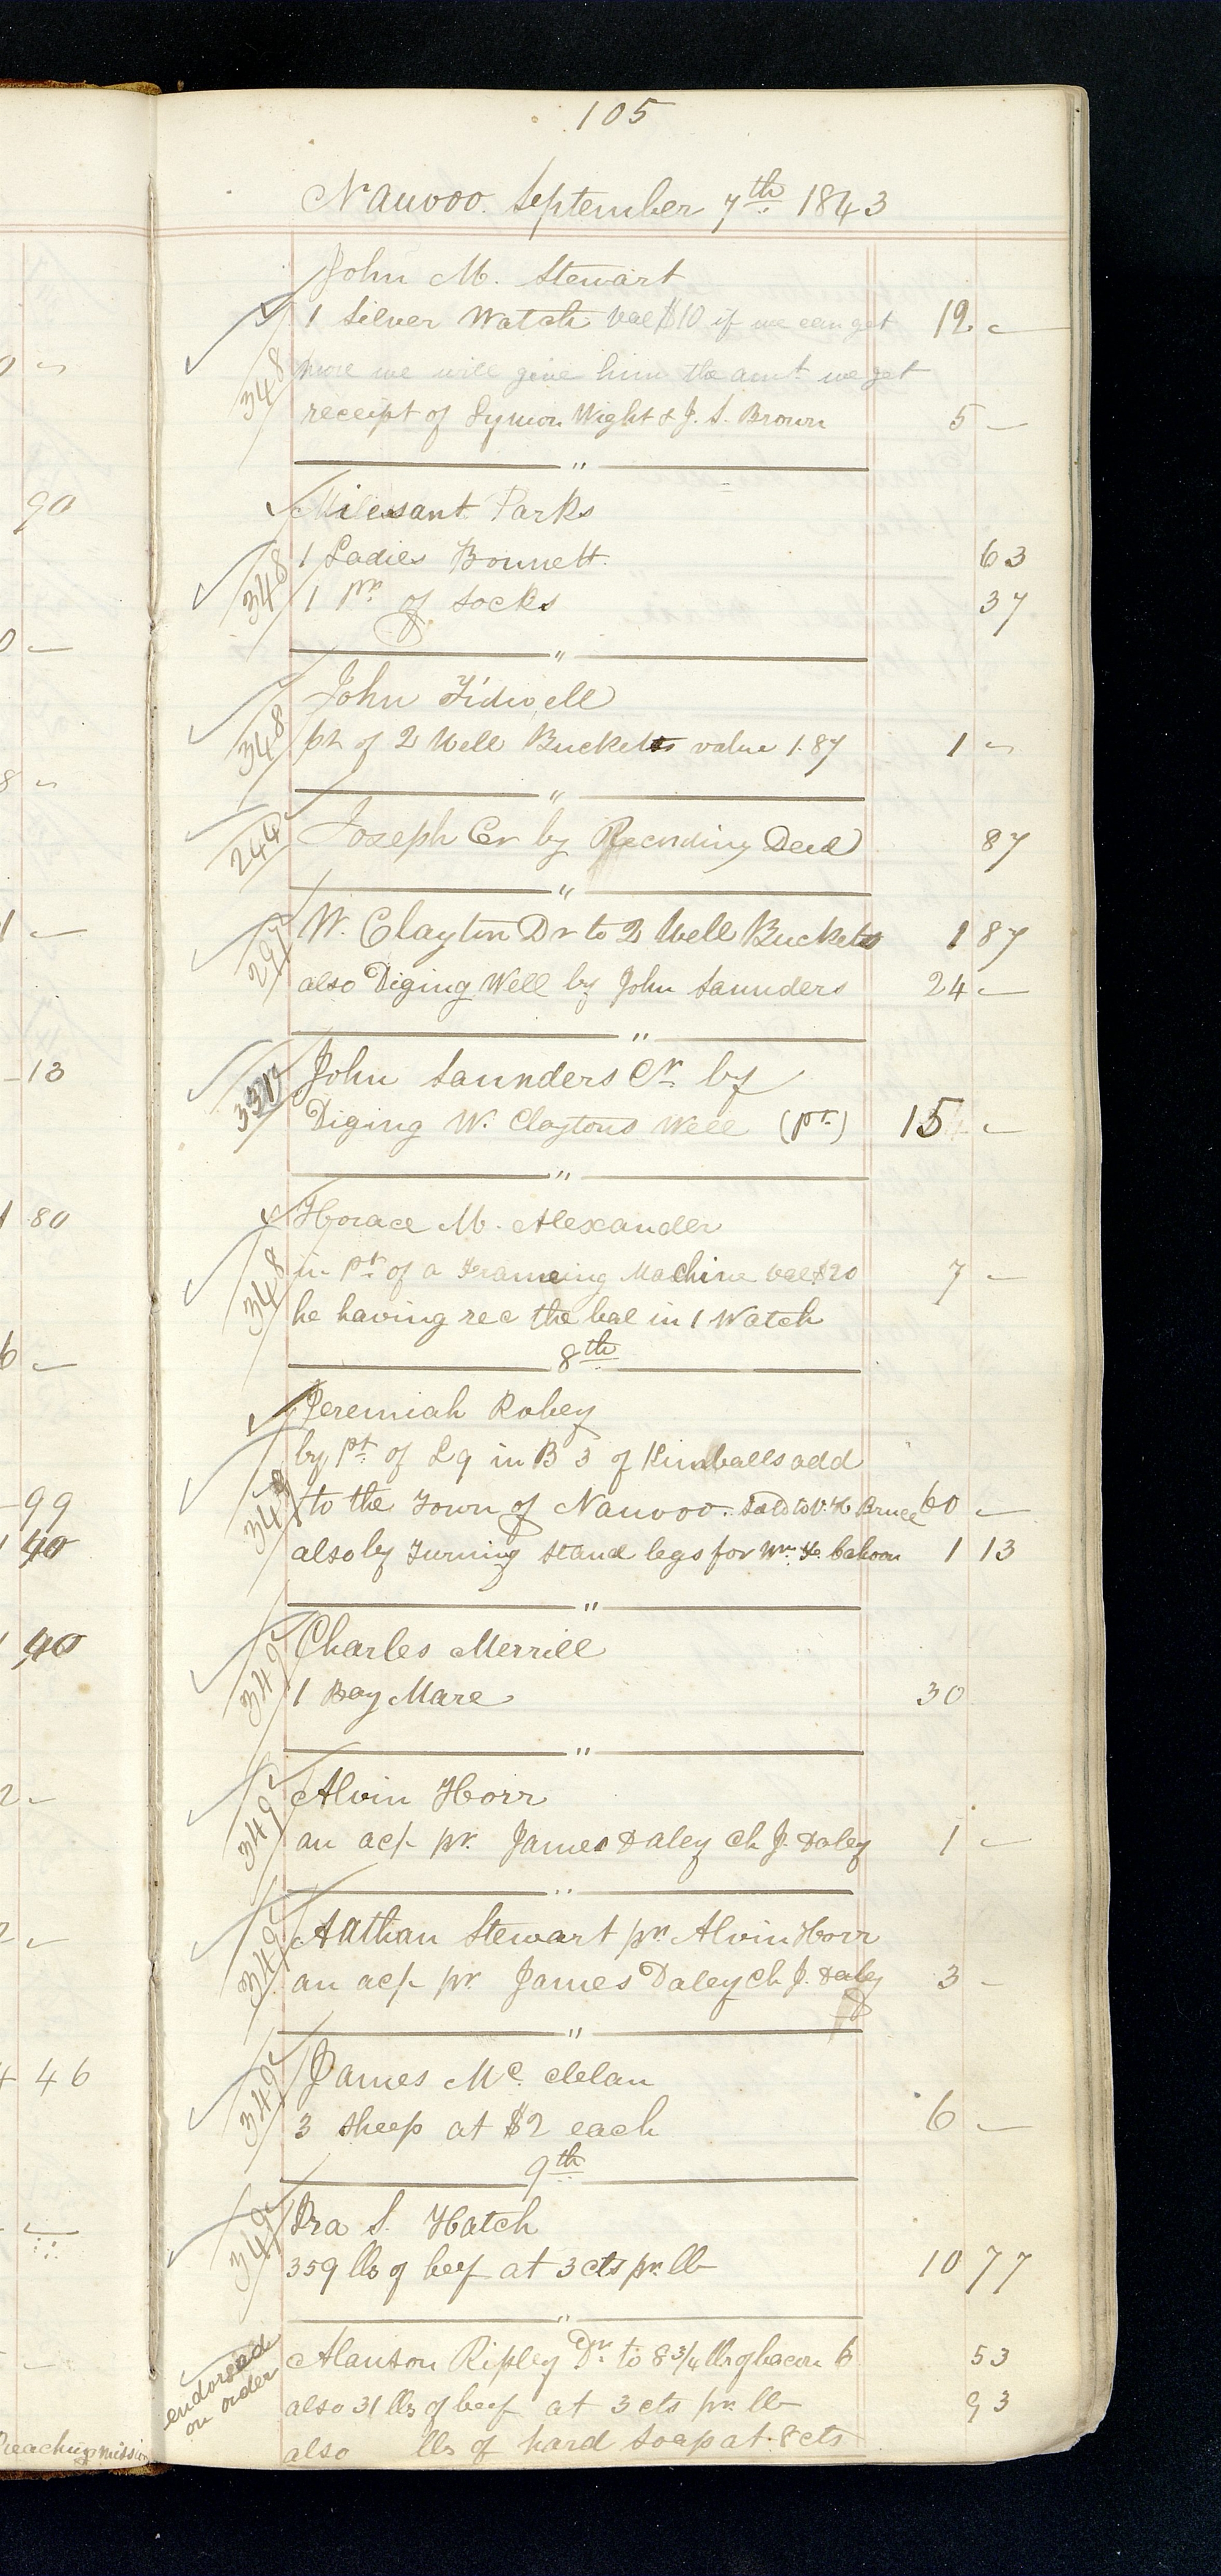 105
Nauvoo. September 7th 1843
John M. Stewart
348 1 Silver Watch val $10 if we can get 12 -
more we will give him the amt we get
receipt of Lymon Wight & J. S. Brown 5 -
"
Milesant Parks
348 1 Ladies Bonnett. 63
1 pr. of Socks 37
"
John Tidwell
348 pt of 2 Well Buckets value 1.87 1 -
"
244 Joseph Cr by Recording Deed 87
"
297 W. Clayton Dr to 2 Well Buckets 1 87
also Diging Well by John Saunders 24 -
"
John Saunders Cr. by
Diging W. Claytons Well (pt.) 15 -
"
Horace M. Alexander
348 in pt. of a Frameing Machine val $20 7 -
he having rec the bal in 1 Watch
8th
Jeremiah Robey
by pt. of L 9 in B 3 of Kimballs add
348 to the Town of Nauvoo. Sold to Bruce 60 -
also by Turning Stand legs for Wm. F. Cahoon 1 13
"
Charles Merrill
349 1 Bay Mare 30
"
Alvin Horr
349 an ac/- pr. James Daley ch J. Daley 1 -
"
Nathan Stewart pr. Alvin Horr
349 an ac/- pr. James Daley ch J. Daley 3 -
"
James Mc. clelan
349 3 Sheep at $2 each 6 -
9th
Ira S. Hatch
349 359 lbs of beef at 3 cts pr. lb 10 77
"
endorsed on order
Alanson Ripley Dr. to 8 3/4 lbs of bacon 6 53
also 31 lbs of beef at 3 cts pr. lb 93
also lbs of hard Soap at 8 cts
90
13
1 80
99
40
40
46
Preaching mission